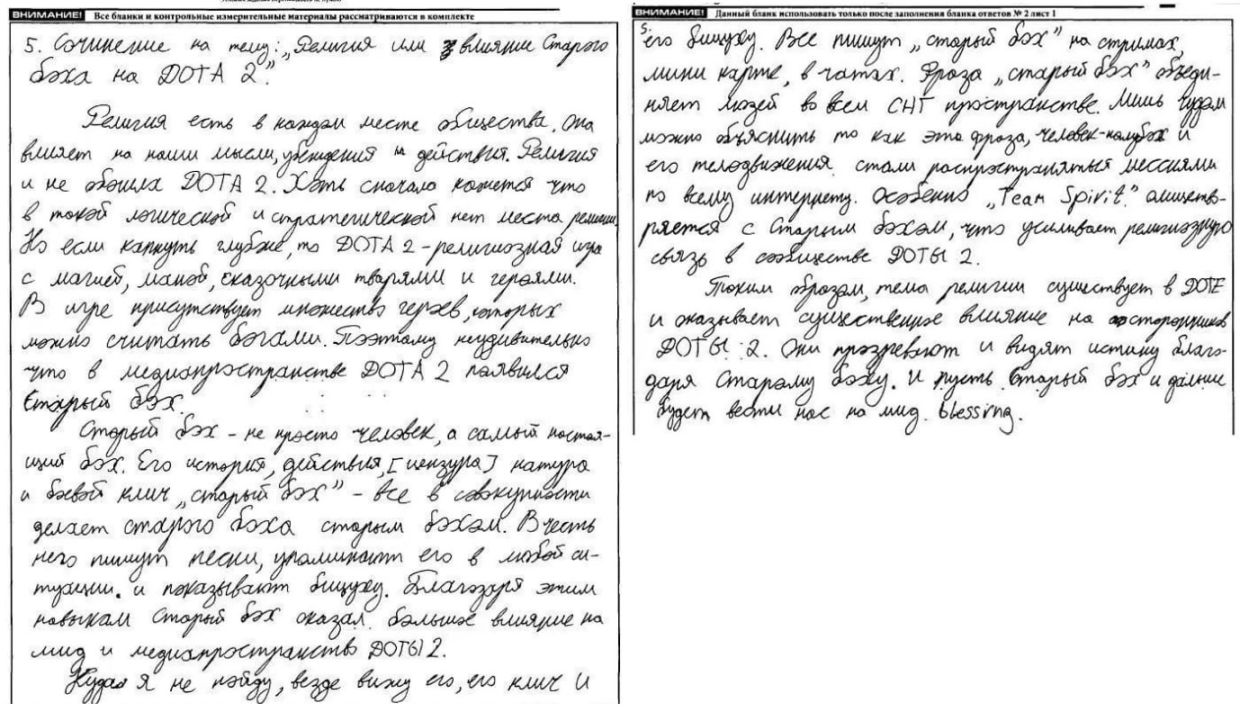 ВНИМАНИЕ! Все бланки и контрольные измерительные материалы рассматриваются в комплекте
5. Сочинение на тему: „Религия или влияние Старого
бэха на ДОТА 2."
Религия есть в каждом месте общества. Она
влияет на наши мысли, убеждения и действия. Религия
и не обошла ДОТА 2. Хоть сначала кажется что
в такой логической и стратегической нет места религии
Но если капнуть глубже, то ДОТА 2 - религиозная игра
с магией, маной, сказочными тварями и героями.
В игре присутствует множество героев, которых
можно считать богами. Поэтому неудивительно
что в медиапространстве ДОТА 2 появился
Старый бэх.
Старый бэх - не просто человек, а самый настоя-
щий бэх. Его история, действия, [цензура] натура
и боевой клич „старый бэх" - все в совокупности
делает старого бэха старым бэхом. В честь
него пишут песни, упоминают его в любой си-
туации. и показывают бицуху. Благодаря этим
навыкам Старый бэх оказал большое влияние на
мид и медиапространство ДОТЫ 2.
Куда я не пойду, везде вижу его, его клич и
ВНИМАНИЕ! Данный бланк использовать только после заполнения бланка ответов № 2 лист 1
5 его бицуху. Все пишут „старый бэх" на стримах,
мини карте, в чатах. Фраза „старый бэх" объеди-
няет людей во всем СНГ пространстве. Лишь чудом
можно объяснить то как эта фраза, человек-
его телодвижения стали распространяться мессиями
по всему интернету. Особенно „Team Spirit" олицетво-
ряется с Старым бэхом, что усиливает религиозную
связь в сообществе ДОТЫ 2.
Таким образом, тема религии существует в ДОТЕ
и оказывает существенное влияние на сторонников
ДОТЫ 2. Они прозревают и видят истину благо-
даря Старому бэху. И пусть Старый бэх и дальше
будет вести нас на мид. blessing.